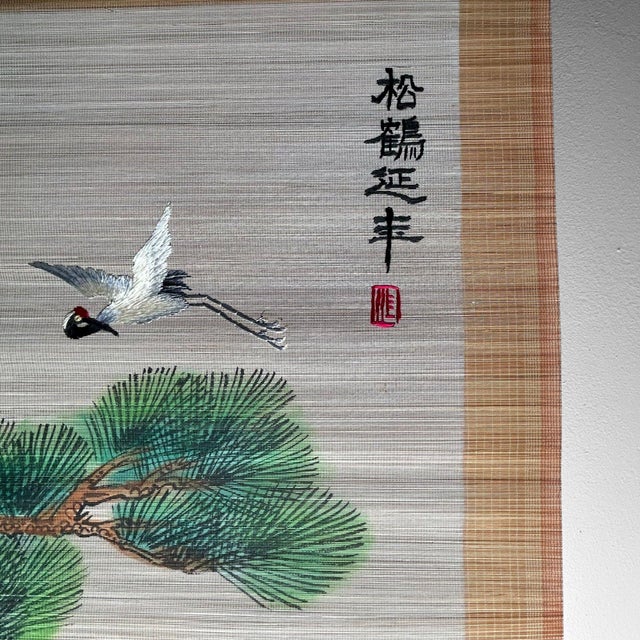 松鶴延年